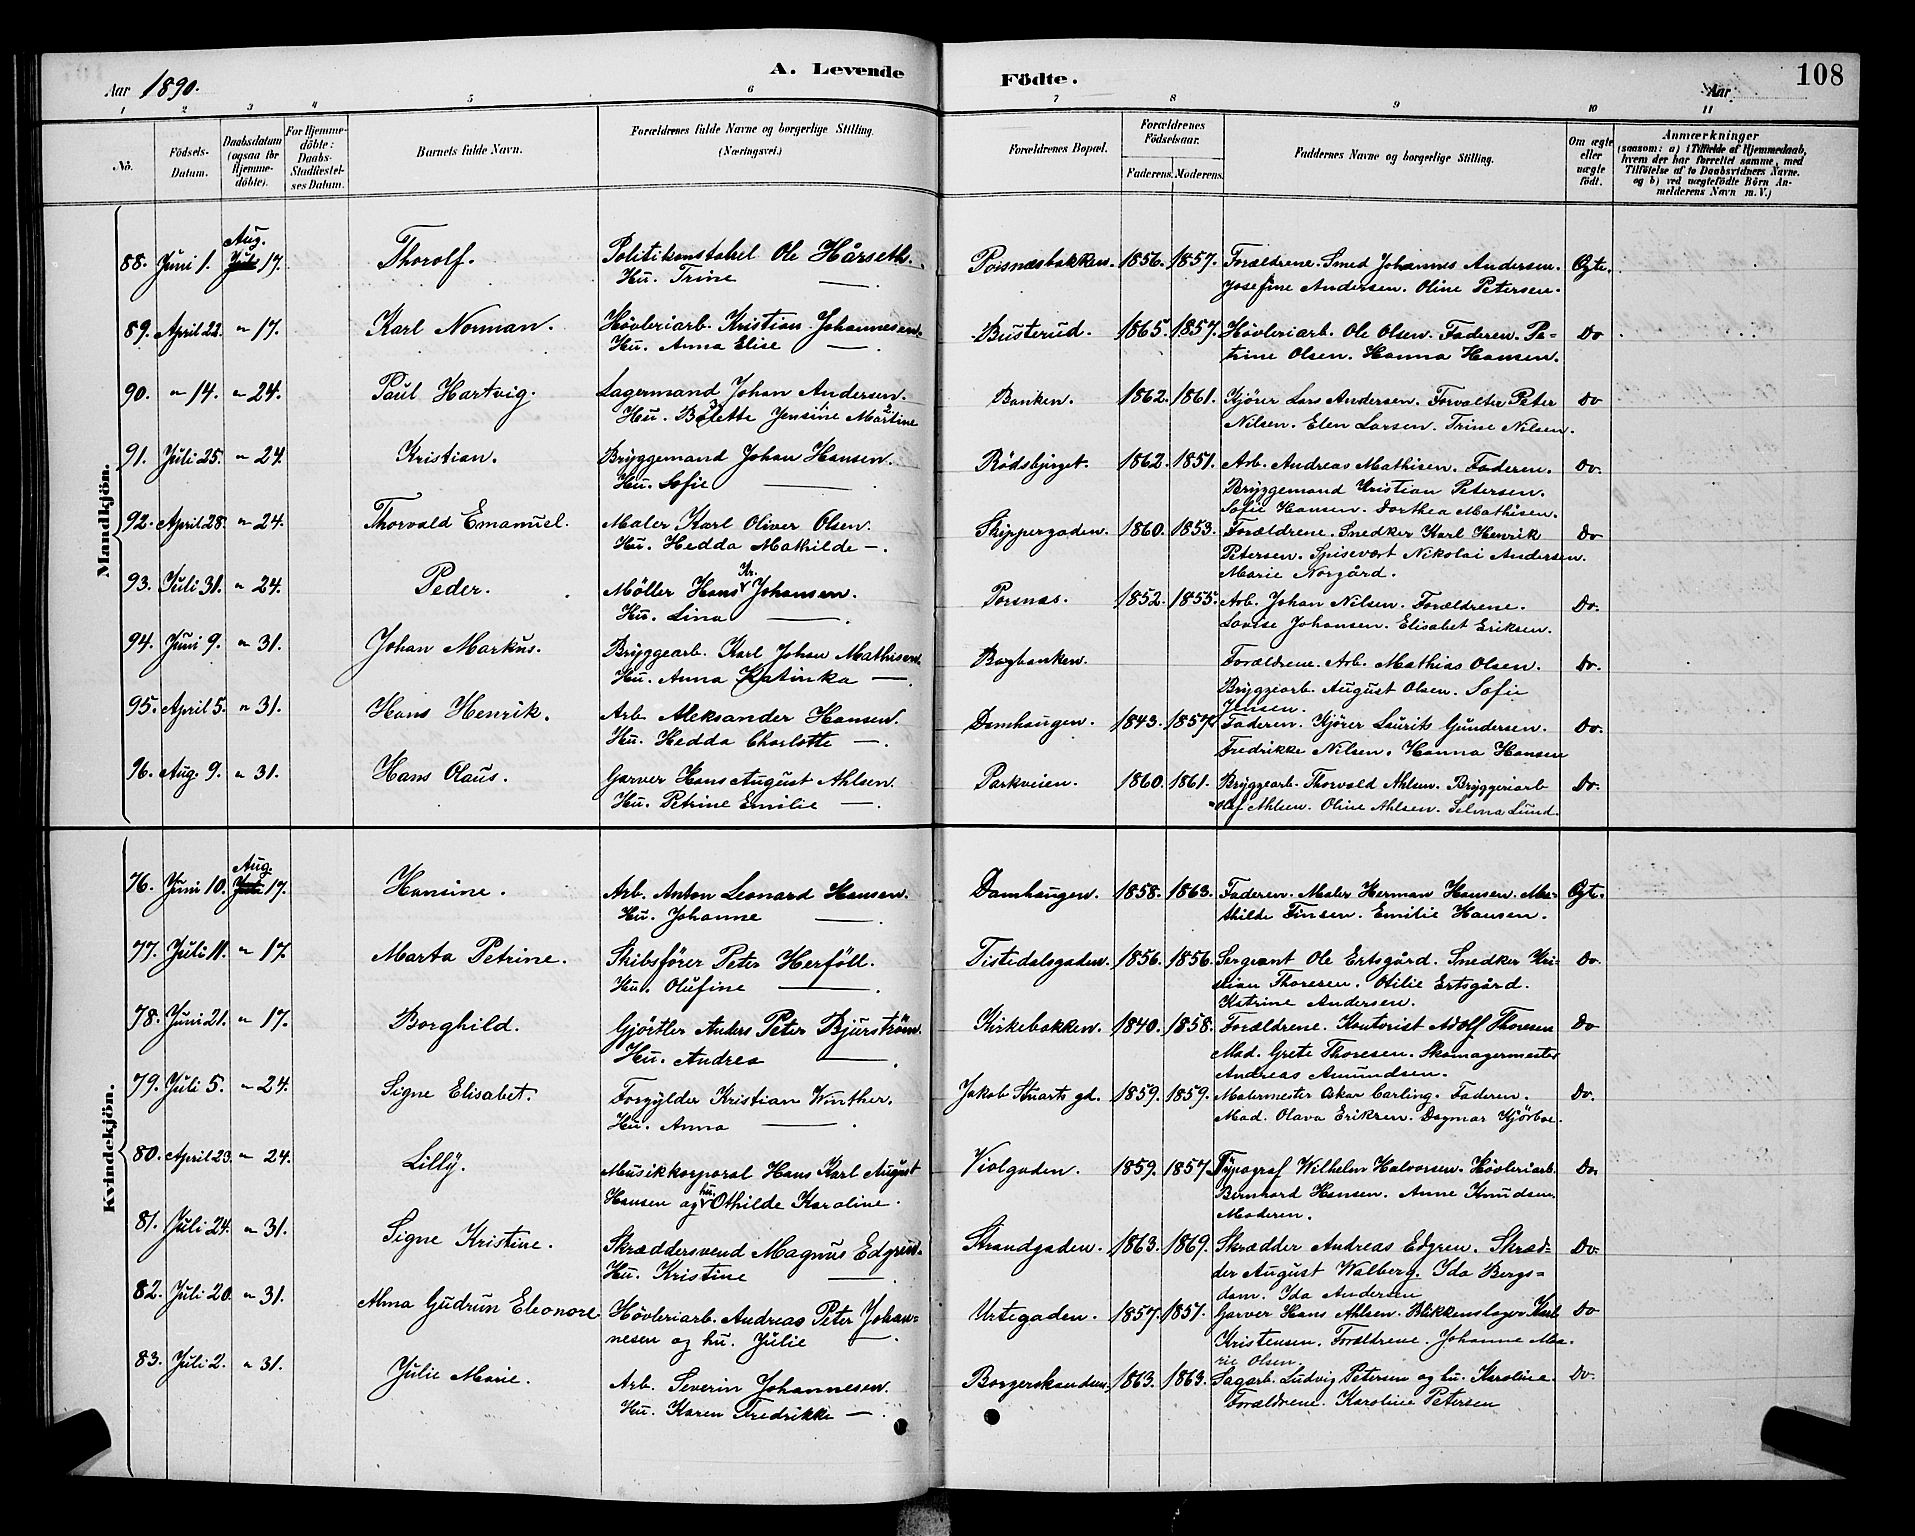 A. Levende Födte.
108
Aar 1890.
Aar
1 2 3 4 5 6 7 8 9 10 11
No.
Födsels-Datum.
Daabsdatum (ogsaa for Hjemme-döbte).
For Hjemme-döbte: Daabs-Stadfæstel-ses Datum.
Barnets fulde Navn.
Forældrenes fulde Navne og borgerlige Stilling. (Næringsvei.)
Forældrenes Bopæl.
Forældrenes Födselsaar.
Faderens. Moderens.
Faddernes Navne og borgerlige Stilling.
Om ægte eller uægte födt.
Anmærkninger
(saasom: a) i Tilfælde af Hjemmedaab,
hvem der har forrettet samme, med
Tilföielse af to Daabsvidners Navne.
og b) ved uægtefödte Börn An-
melderens Navn m. V.)
Mandkjön.
88. Juni 1. Aug. 17. Thorolf. Politikonstabel Ole Hårseth. Porsnæsbakken. 1856. 1857. Forældrene. Smed Johannes Andersen. Ægte.
Hu. Trine — Josefine Andersen. Oline Petersen.
89. April 22. " 17. Karl Norman. Høvleriarb. Kristian Johannesen. Busterud. 1865. 1857. Høvleriarb. Ole Olsen. Faderen. Pe-
Hu. Anna Elise — trine Olsen. Hanna Hansen. Do
90. " 14. " 24. Paul Hartvig. Lagermand Johan Andersen. Banken. 1862. 1861. Kjører Lars Andersen. Forvalter Peter Do
Hu. Bolette Jensine Martine Nilsen. Elen Larsen. Trine Nilsen.
91. Juli 25. " 24. Kristian. Bryggemand Johan Hansen. Rødsbjerget. 1862. 1851. Arb. Andreas Mathisen. Faderen. Do.
Hu. Sofie — Bryggemand Kristian Petersen.
Sofie Hansen. Dorthea Mathisen.
92. April 28. " 24. Thorvald Emanuel. Maler Karl Oliver Olsen. Skippergaden. 1860. 1853. Forældrene. Snedker Karl Henrik Do
Hu. Hedda Mathilde —. Petersen. Spisevært Nikolai Andersen.
Marie Norgård.
93. Juli 31. " 24. Peder. Möller Hans Kr. Johansen. Porsnæs. 1852. 1855. Arb. Johan Nilsen. Forældrene. Do.
Hu. Lina — Lovise Johansen. Elisabet Eriksen.
94. Juni 9. " 31. Johan Markus. Bryggearb. Karl Johan Mathisen. Bagbanken. Forældrene. Arb. Mathias Olsen. Do.
Hu. Anna Katinka —. Bryggearb. August Olsen. Sofie
Jensen.
95. April 5. " 31. Hans Henrik. Arb. Aleksander Hansen. Damhaugen. 1843. 1857. Faderen. Kjører Laurits Gundersen. Do.
Hu. Hedda Charlotte —. Fredrikke Nilsen. Hanna Hansen
96. Aug. 9. " 31. Hans Olaus. Garver Hans August Ahlsen. Parkveien. 1860. 1861. Bryggearb. Thorvald Ahlsen. Bryggeriarb Do.
Hu. Petrine Emilie —. Olaf Ahlsen. Oline Ahlsen. Selma Lund.
Kvindekjön.
76. Juni 10. Aug. 17. Hansine. Arb. Anton Leonard Hansen. Damhaugen. 1858. 1863. Faderen. Maler Herman Hansen. Ma- Ægt.
Hu. Johanne — thilde Finsen. Emilie Hansen.
77. Juli 11. " 17. Marta Petrine. Skibsfører Peter Herföll. Tistedalsgaden. 1856. 1856. Sergeant Ole Ertsgård. Snedker Kri- Do
Hu. Olufine —. stian Thoresen. Otilie Ertsgård.
Katrine Andersen.
78. Juni 21. " 17. Borghild. Gjørtler Anders Peter Bjurström. Kirkebakken. 1840. 1858. Forældrene. Kontorist Adolf Thoresen Do
Hu. Andrea —. Mad. Grete Thoresen. Skomagermester
Andreas Amundsen.
79. Juli 5. " 24. Signe Elisabet. Forgylder Kristian Winther. Jakob Stuarts gd. 1859. 1859. Malermester Oskar Carling. Faderen. Do.
Hu. Anna —. Mad. Olava Eriksen. Dagmar Kjørboe.
80. April 23. " 24. Lilly. Musikkorporal Hans Karl August Violgaden. 1859. 1857. Typograf Wilhelm Halvorsen. Høvleriarb. Do.
Hansen og hu. Othilde Karoline. Bernhard Hansen. Anne Knudsen.
Moderen.
81. Juli 24. " 31. Signe Kristine. Skræddersvend Magnus Edgren. Strandgaden. 1863. 1869. Skrædder Andreas Edgren. Skræd- Do.
Hu. Kristine — der August Walberg. Ida Bergs=
dam. Ida Andersen
82. Juli 20. " 31. Alma Gudrun Eleonore Høvleriarb. Andreas Peter Johan= Urtegaden. 1857. 1851. Garver Hans Ahlsen. Blikkenslager Karl Do
nesen og hu. Julie — Kristensen. Forældrene. Johanne Ma-
rie Olsen.
83. Juli 2. " 31. Julie Marie. Arb. Severin Johannesen. Borgerskansen. 1863. 1863. Sagarb. Ludvig Petersen og hu. Karoline. Do.
Hu. Karen Fredrikke —. Forældrene. Karoline Petersen